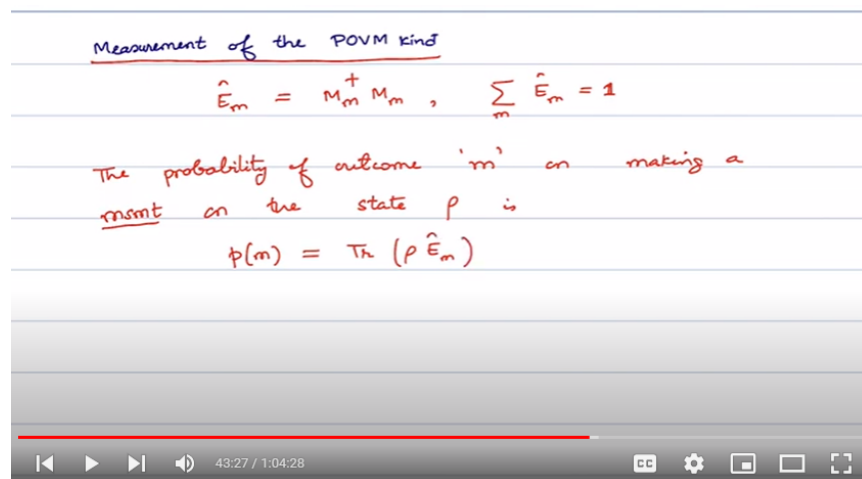 Measurement of the POVM kind
Êm = Mm† Mm , ∑m Êm = 1
The probability of outcome 'm' on making a
msmt on the state ρ is
p(m) = Tr (ρ Êm)
43:27 / 1:04:28
CC